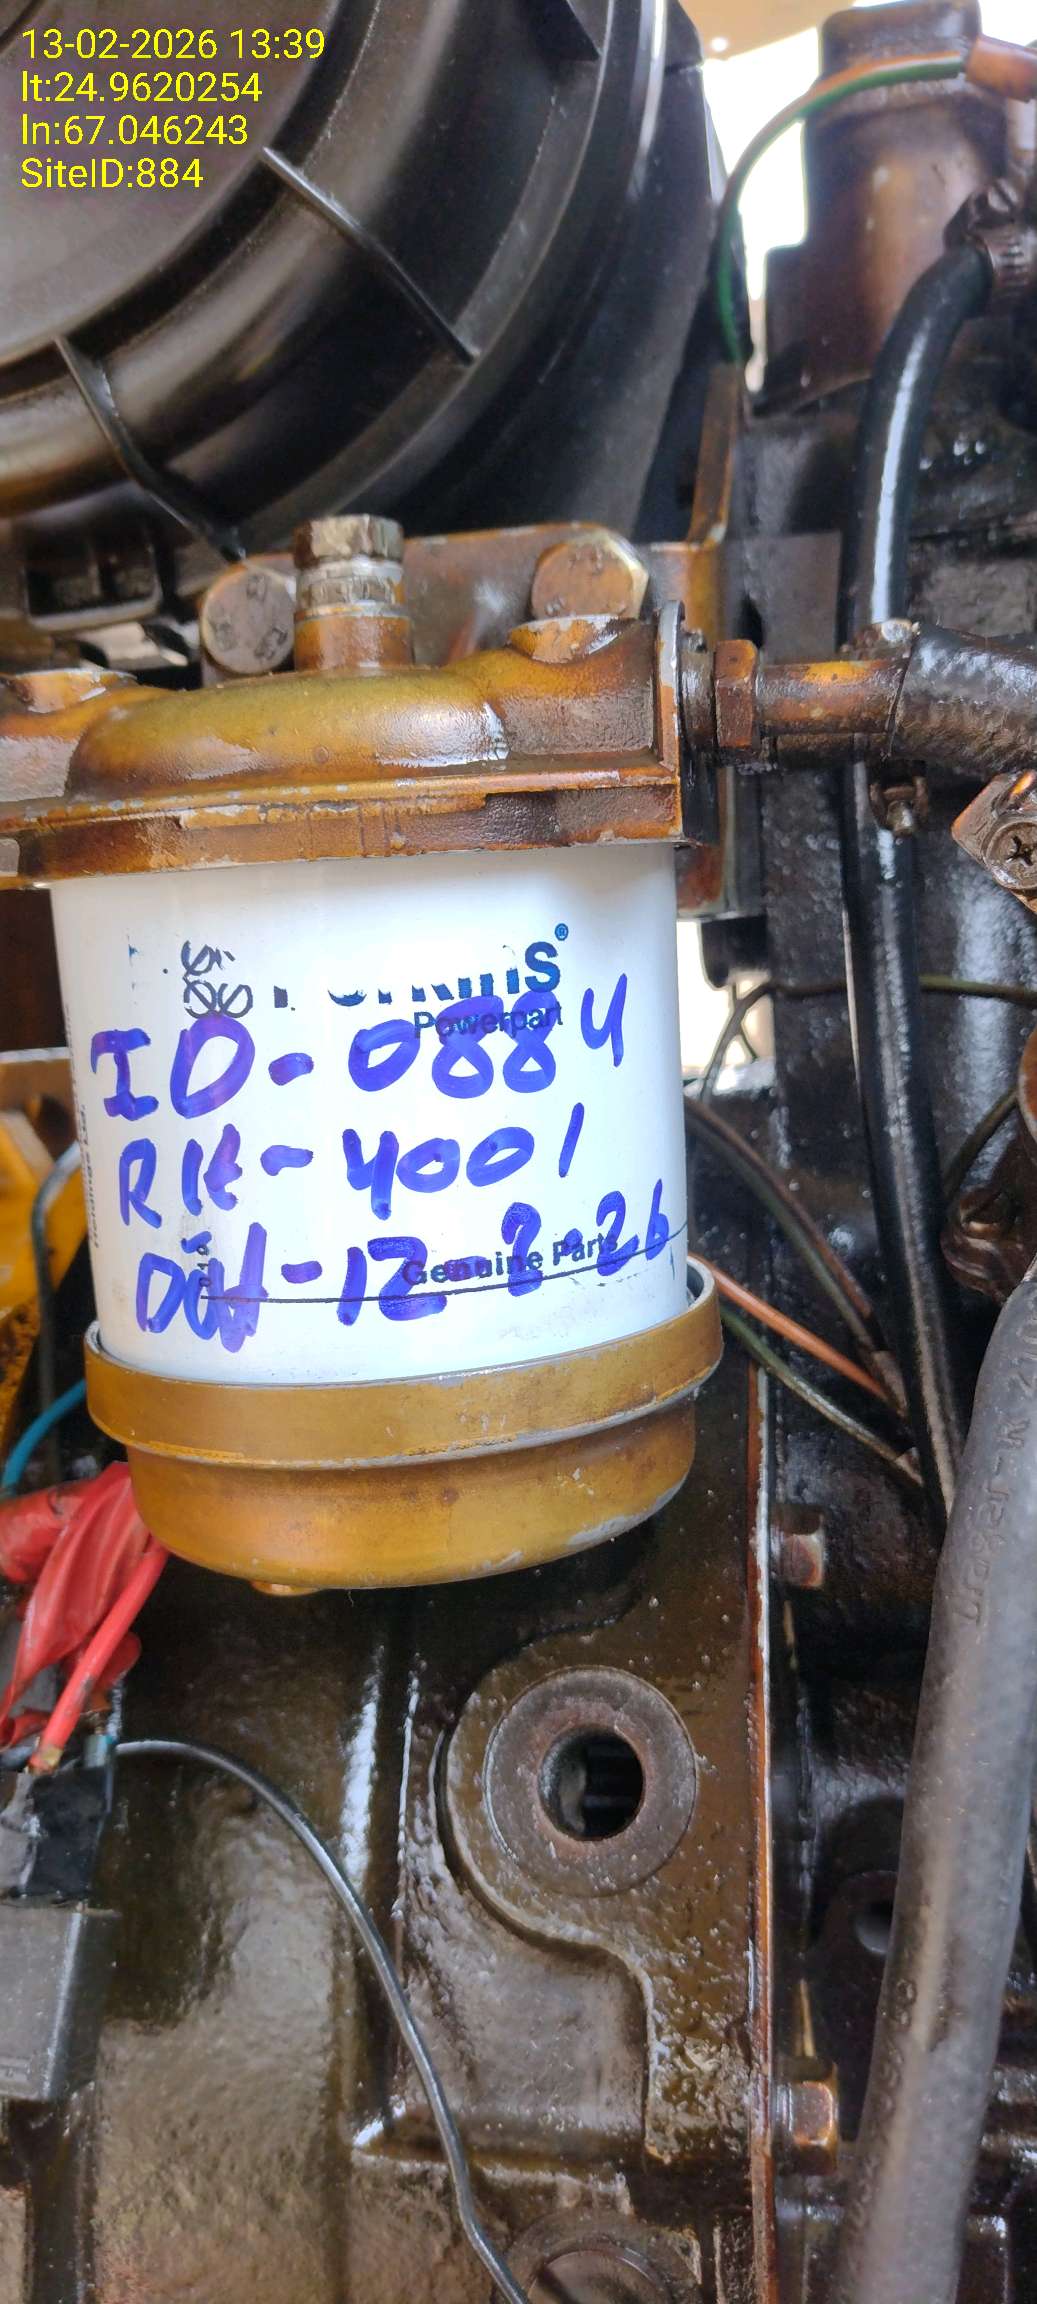 13-02-2026 13:39
lt:24.9620254
ln:67.046243
SiteID:884
Perkins®
Powerpart
ID-0884
RH-4001
Genuine Parts
Dat-12-2-26